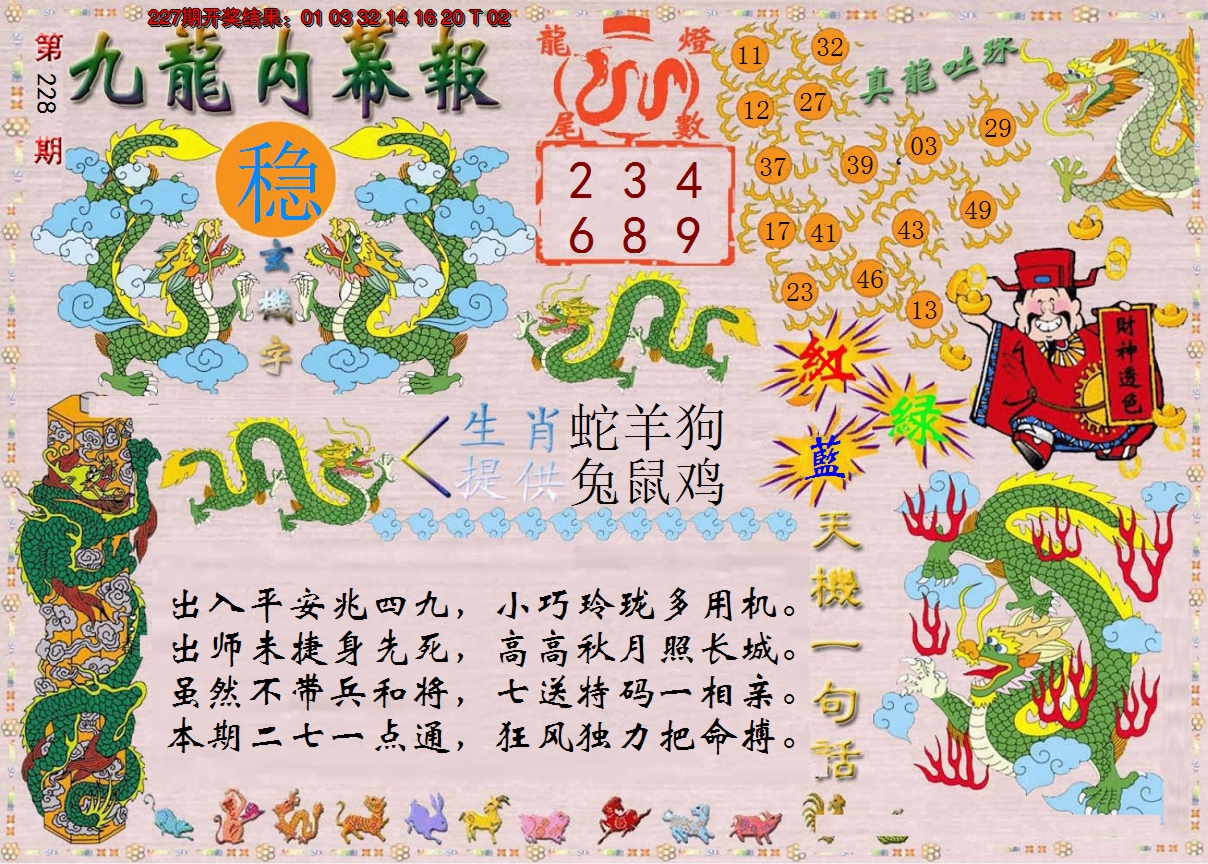 227期开奖结果：01 03 32 14 16 20 T 02
第228期
九龍内幕報
稳
玄機字
龍燈
尾數
2 3 4
6 8 9
真龍吐珠
11 32
12 27
37 39 03 29
17 41 43 49
23 46 13
財神透色
紅
綠
藍
生肖 蛇羊狗
提供 兔鼠鸡
天機一句話
出入平安兆四九，小巧玲珑多用机。
出师未捷身先死，高高秋月照长城。
虽然不带兵和将，七送特码一相亲。
本期二七一点通，狂风独力把命搏。